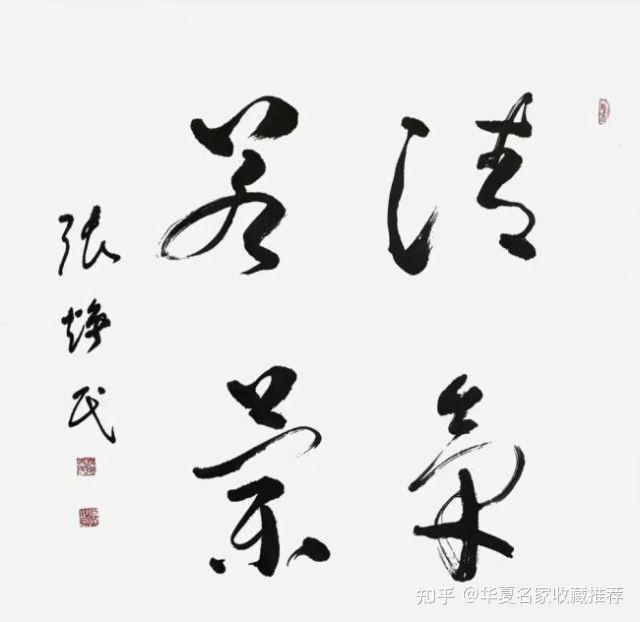 清氣
若蘭
张焕民
知乎 @华夏名家收藏推荐